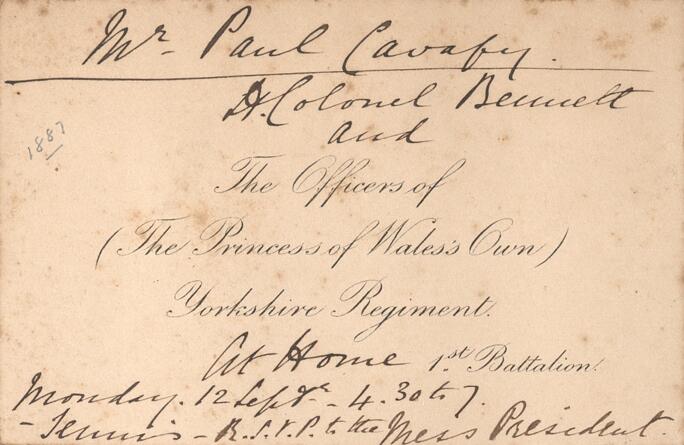 Mr. Paul Cavafy.
Lt. Colonel Bennett
and
1887
The Officers of
(The Princess of Wales's Own)
Yorkshire Regiment.
At Home 1st. Battalion.
Monday. 12 Septr - 4.30 to 7.
- Tennis - R.S.V.P. to the Mess President.